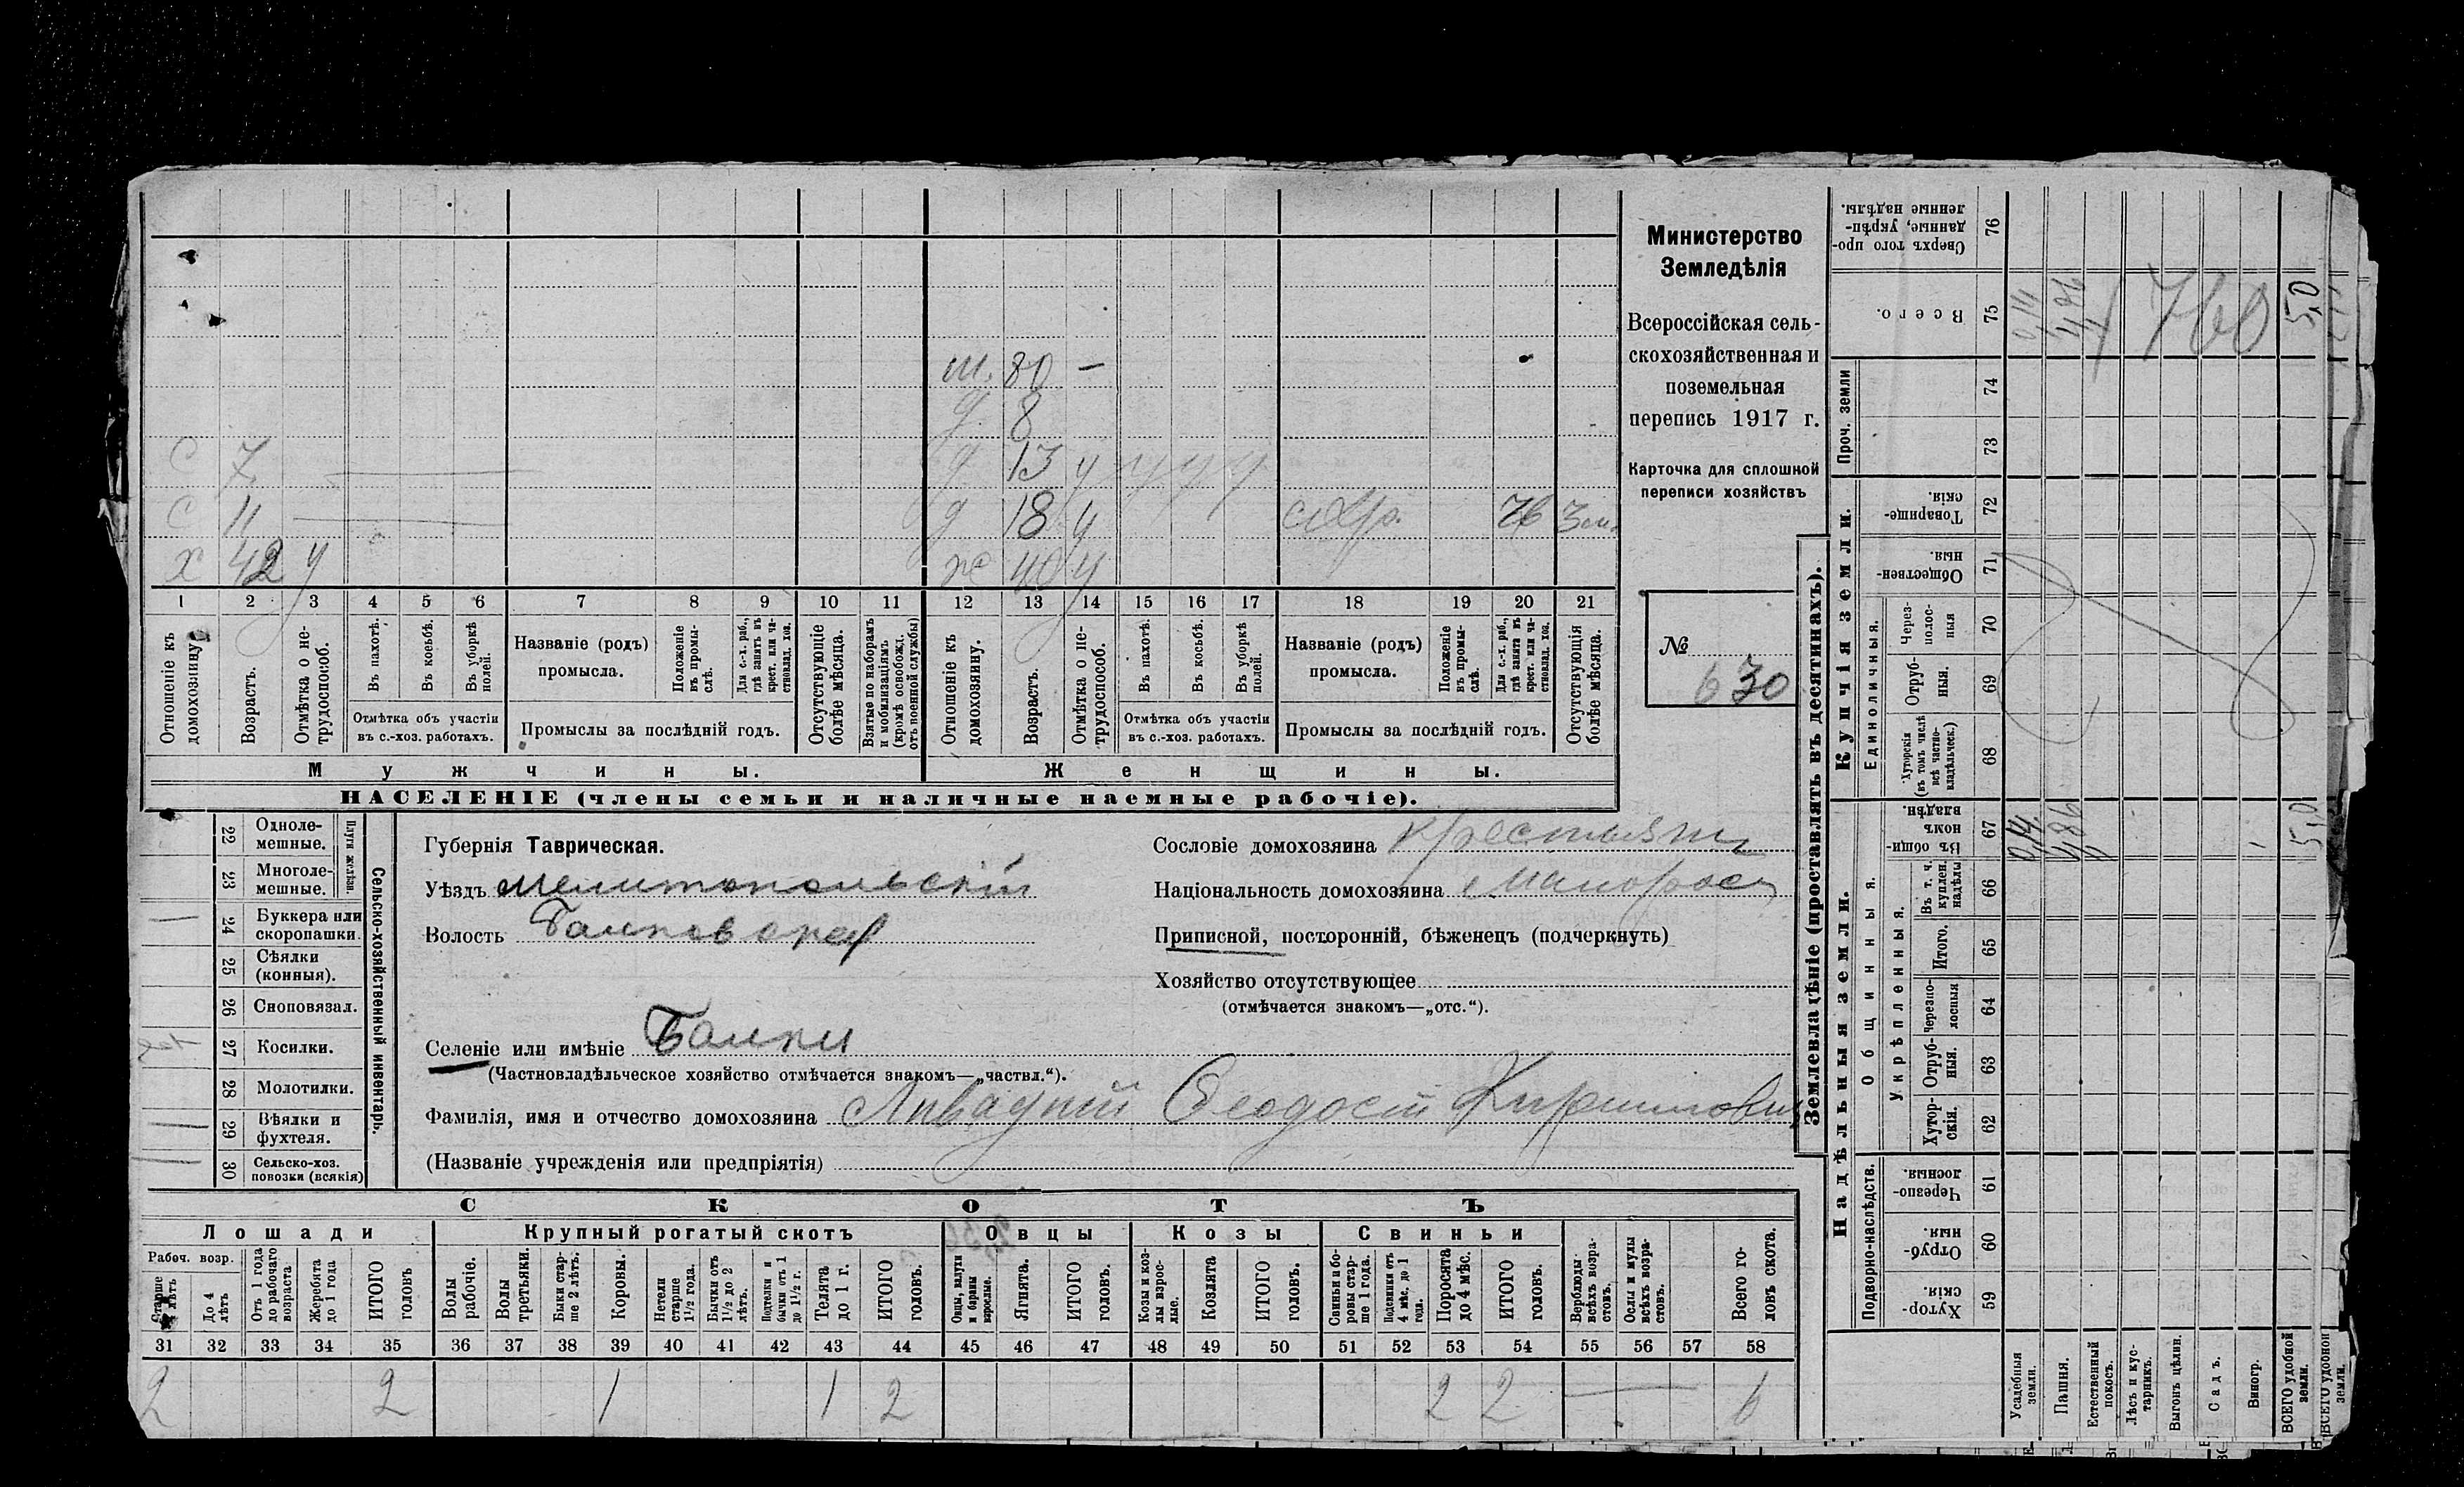 Министерство
Земледѣлія
Всероссійская сель-
скохозяйственная и
поземельная
перепись 1917 г.
Карточка для сплошной
переписи хозяйствъ
№
630
м. 80 —
д. 8
С 7 д 13 у у у у
С 11 д 18 у 3 м.
х 42 у ж 40 у
1 2 3 4 5 6 7 8 9 10 11 12 13 14 15 16 17 18 19 20 21
Отношеніе къ домохозяину.
Возрастъ.
Отмѣтка о не-трудоспособ.
Въ пахотѣ.
Въ косьбѣ.
Въ уборкѣ полей.
Отмѣтка объ участіи
въ с.-хоз. работахъ.
Названіе (родъ)
промысла.
Положеніе въ промы-слѣ.
Для с.-х. раб., гдѣ занятъ въ крест. или ча-стновлад. хоз.
Промыслы за послѣдній годъ.
Отсутствующіе болѣе мѣсяца.
Взятые по наборамъ и мобилизаціямъ (кромѣ освобожд. отъ военной службы)
Отношеніе къ домохозяину.
Возрастъ.
Отмѣтка о не-трудоспособ.
Въ пахотѣ.
Въ косьбѣ.
Въ уборкѣ полей.
Отмѣтка объ участіи
въ с.-хоз. работахъ.
Названіе (родъ)
промысла.
Положеніе въ промы-слѣ.
Для с.-х. раб., гдѣ занята въ крест. или ча-стновлад. хоз.
Промыслы за послѣдній годъ.
Отсутствующія болѣе мѣсяца.
Мужчины.
Женщины.
НАСЕЛЕНІЕ (члены семьи и наличные наемные рабочіе).
Сельско-хозяйственный инвентарь.
Плуги желѣзн
22 Одноле-мешные.
23 Многоле-мешные.
24 Буккера или скоропашки.
25 Сѣялки (конныя).
26 Сноповязал.
27 Косилки.
28 Молотилки.
29 Вѣялки и фухтеля.
30 Сельско-хоз. повозки (всякія)
Губернія Таврическая.
Уѣздъ Мелитопольскій
Волость
Селеніе или имѣніе Балки
(Частновладѣльческое хозяйство отмѣчается знакомъ—„частвл.“).
Фамилія, имя и отчество домохозяина Ливадній Феодосій Кирилловичъ
(Названіе учрежденія или предпріятія)
Сословіе домохозяина крестьян
Національность домохозяина Малоросс
Приписной, посторонній, бѣженецъ (подчеркнуть)
Хозяйство отсутствующее
(отмѣчается знакомъ—„отс.“).
СКОТЪ
Лошади
Крупный рогатый скотъ
Овцы
Козы
Свиньи
Рабоч. возр.
Старше 4 лѣтъ
До 4 лѣтъ
Отъ 1 года до рабочаго возраста
Жеребята до 1 года
ИТОГО головъ
Волы рабочіе.
Волы третьяки.
Быки стар-ше 2 лѣтъ.
Коровы.
Нетели старше 1½ года.
Бычки отъ 1½ до 2 лѣтъ.
Подтелки и бычки отъ 1 до 1½ г.
Телята до 1 г.
ИТОГО головъ.
Овцы, валухи и бараны взрослые.
Ягнята.
ИТОГО головъ.
Козы и коз-лы взрос-лые.
Козлята
ИТОГО головъ.
Свиньи и бо-ровы стар-ше 1 года.
Подсвинки отъ 4 мѣс. до 1 года.
Поросята до 4 мѣс.
ИТОГО головъ.
Верблюды всѣхъ возра-стовъ.
Ослы и мулы всѣхъ возра-стовъ.
Всего го-ловъ скота.
31 32 33 34 35 36 37 38 39 40 41 42 43 44 45 46 47 48 49 50 51 52 53 54 55 56 57 58
2 2 1 1 2 2 2 — 6
Землевладѣніе (проставлять въ десятинахъ).
Надѣльныя земли.
Купчія земли.
Проч. земли
Подворно-наслѣдств.
Общинныя.
Укрѣпленныя.
Единоличныя.
Сверхъ того про-данные, укрѣп-ленные надѣлы. 76
Всего. 75
74
73
Товарище-скія. 72
Обществен-ныя. 71
Через-полос-ныя 70
Отруб-ныя. 69
Хуторскія (въ томъ числѣ всѣ частно-владѣльческ.) 68
Въ общин-номъ владѣн. 67
Въ т. ч. куплен. надѣлы 66
Итого. 65
Черезпо-лосныя 64
Отруб-ныя. 63
Хутор-скія. 62
Черезпо-лосныя 61
Отруб-ныя. 60
Хутор-скія. 59
Усадебныя земли. 0,14 0,14
Пашня. 4,86 4,86
Естественный покосъ.
Лѣсъ и кус-тарникъ.
Выгонъ цѣлин.
Садъ.
Виногр.
ВСЕГО удобной земли. 5,0 5,0
ВСЕГО удобной земли.
760